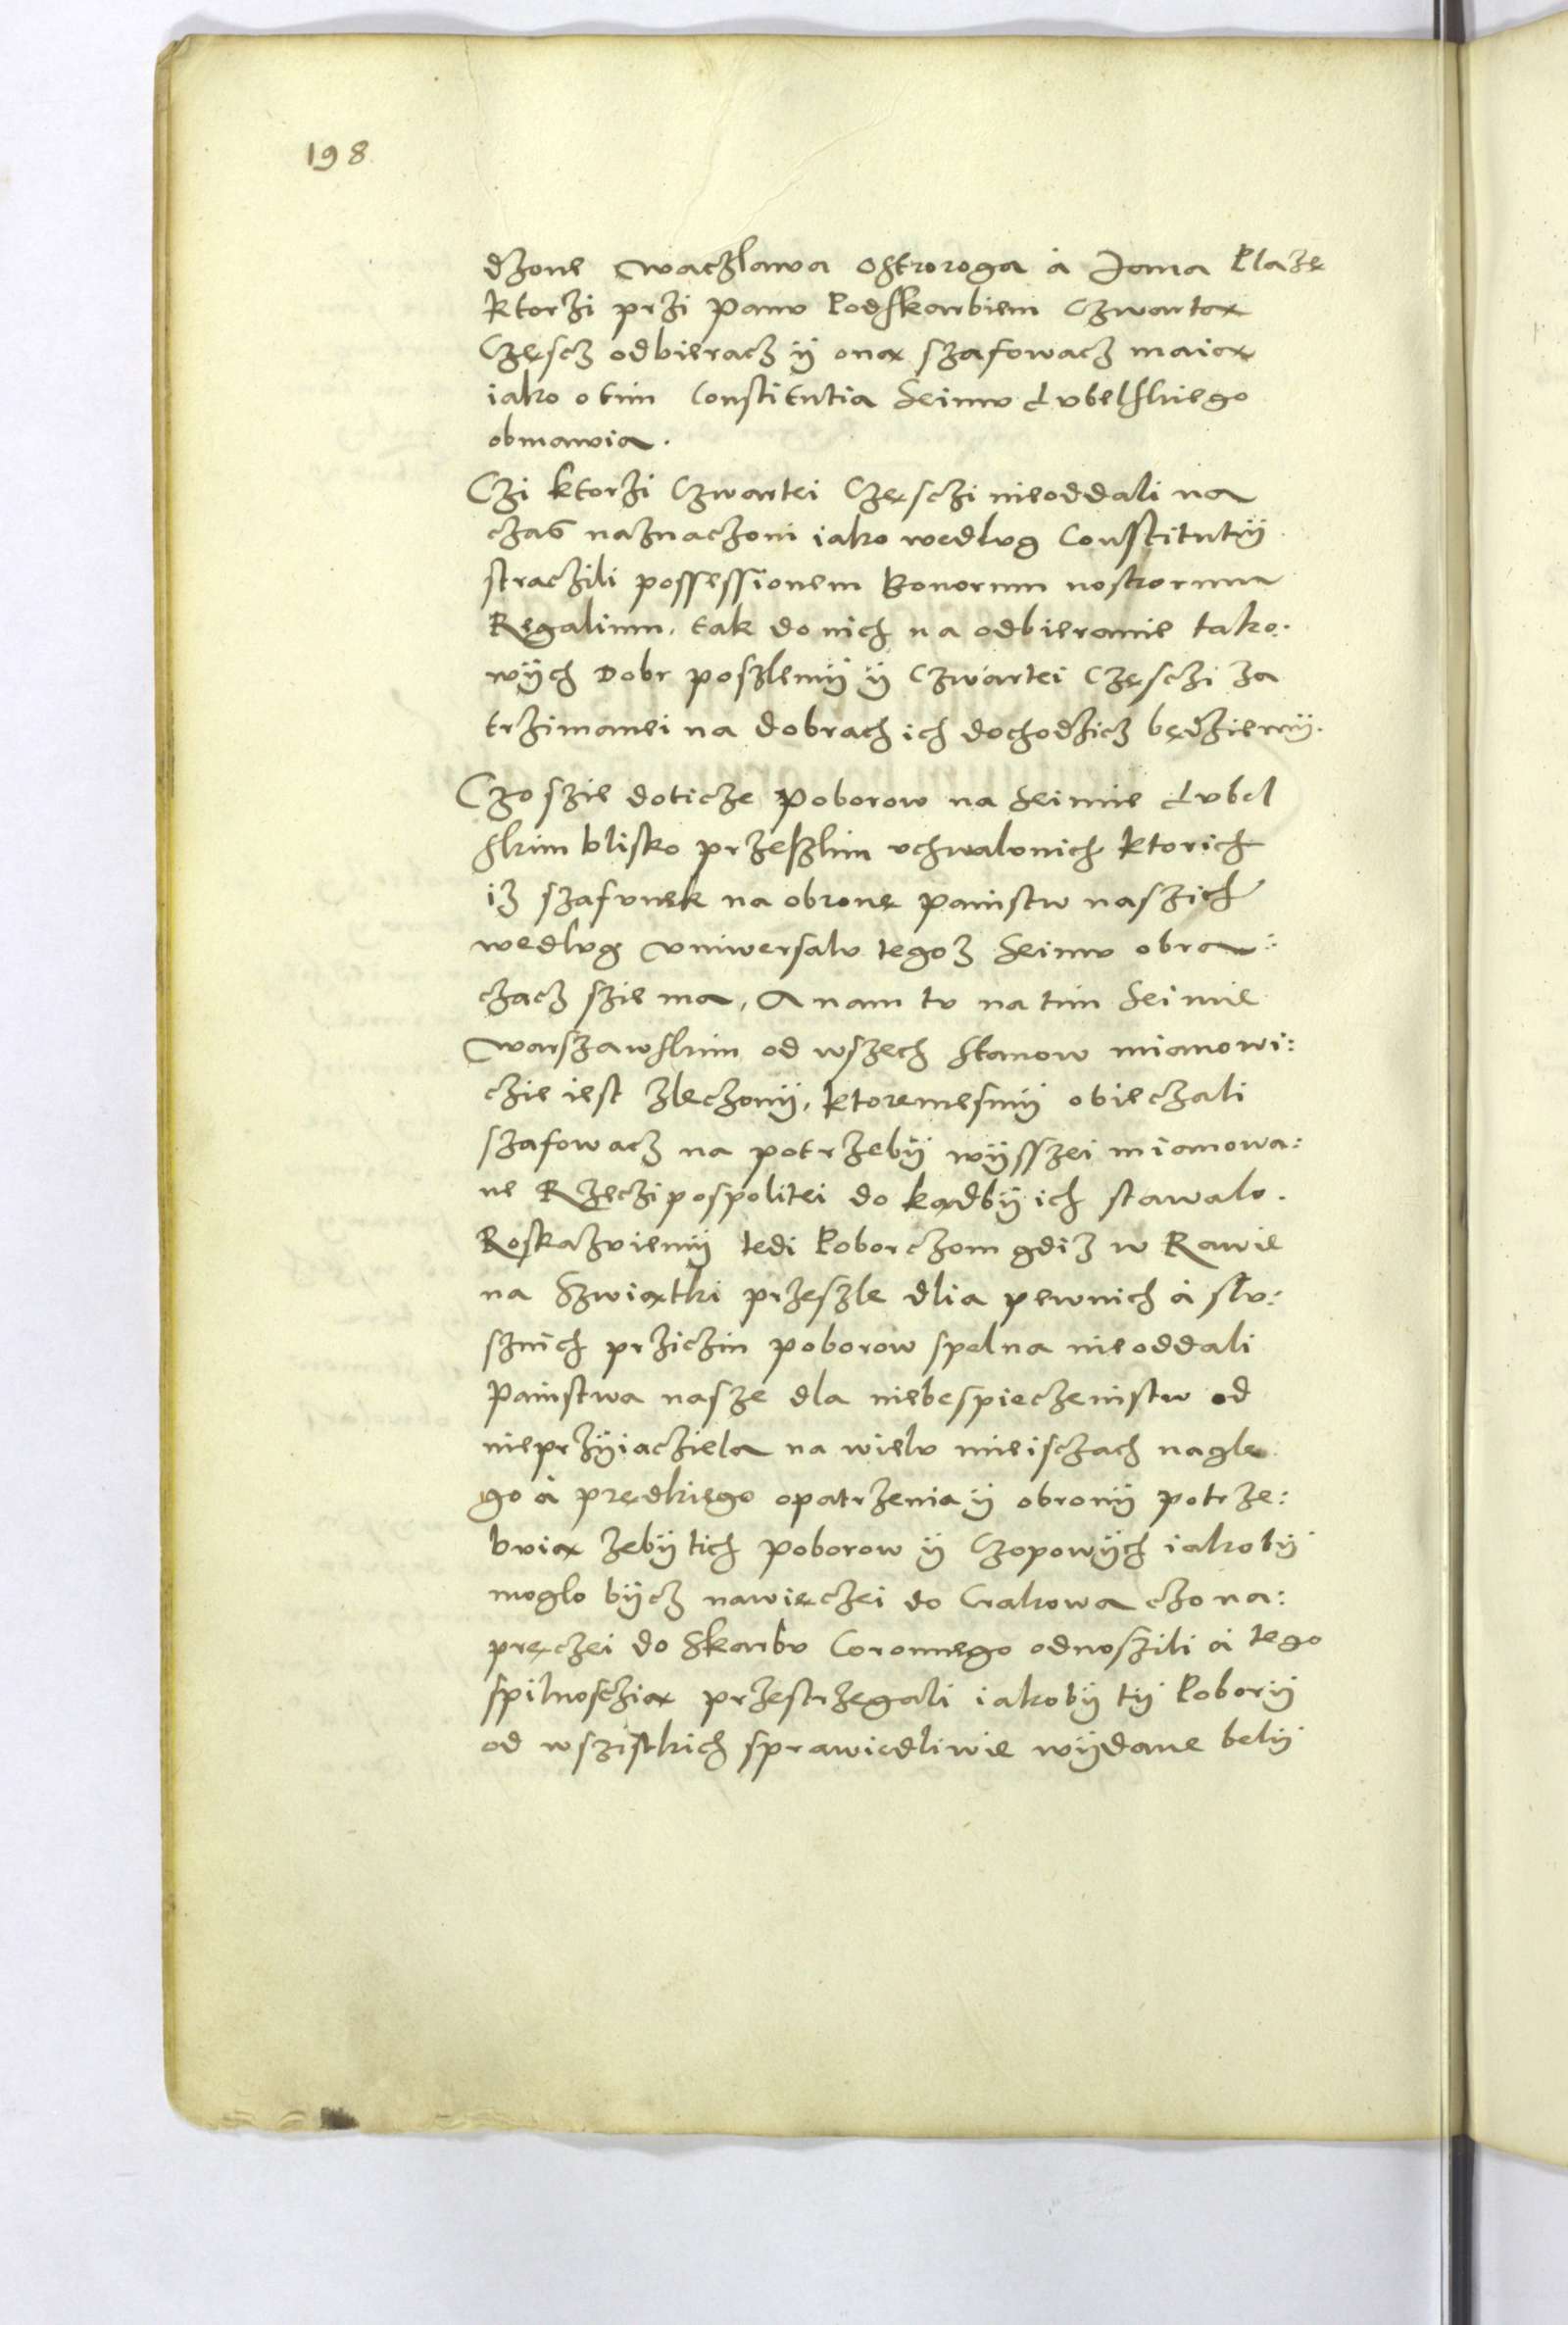 198
dzone Waczlawa Ostroroga á Jana Płazę
ktorzi przi panu Podskarbiem Czwartą
Częscz odbieracz ÿ oną szafowacz maią
iako o tim Constitutia Seimu Lubelskiego
obmawia.
Czi ktorzi Czwartei Częsczi nieoddali na
czas naznaczoni iako wedlug Constitutÿ
straczili possessionem Bonorum nostrorum
Regalium, tak do nich na odbieranie tako.
wÿch Dobr poszlemÿ ÿ Czwartei Częsczi za
trzimanei na dobrach ich dochodzicz będziemÿ.
Czo szie doticze Poborow na Seimie Lubel
skim blisko przeszlim uchwalonich ktorich
iz szafunek na obronę panistw naszich
wedlug Uniwersalu tegoz Seimu obra:
czacz szie ma, A nam tu na tim Seimie
Warszawskim od wszech stanow mianowi:
czie iest zleczonÿ, ktoremesmÿ obieczali
szafowacz na potrzebÿ wÿsszei mianowa:
ne Rzeczipospolitei do kądbÿ ich stawalo.
Roskazuiemÿ tedi Poborczom gdiz w Rawie
na Szwiątki przeszle dlia pewnich á slu:
sznich prziczin poborow spelna nieoddali
Panistwa nasze dla niebespieczenistw od
nieprzÿiacziela na wielu mieisczach nagle
go á prędkiego opatrzenia ÿ obronÿ potrze:
buią zebÿ tich poborow ÿ Czopowÿch iakobÿ
moglo bÿcz nawięczei do Crakowa czo na:
pręczei do Skarbu Coronnego odnoszili á tego
spilnosczią przestrzegali iakobÿ tÿ Poborÿ
od wszistkich sprawiedliwie wÿdane belÿ